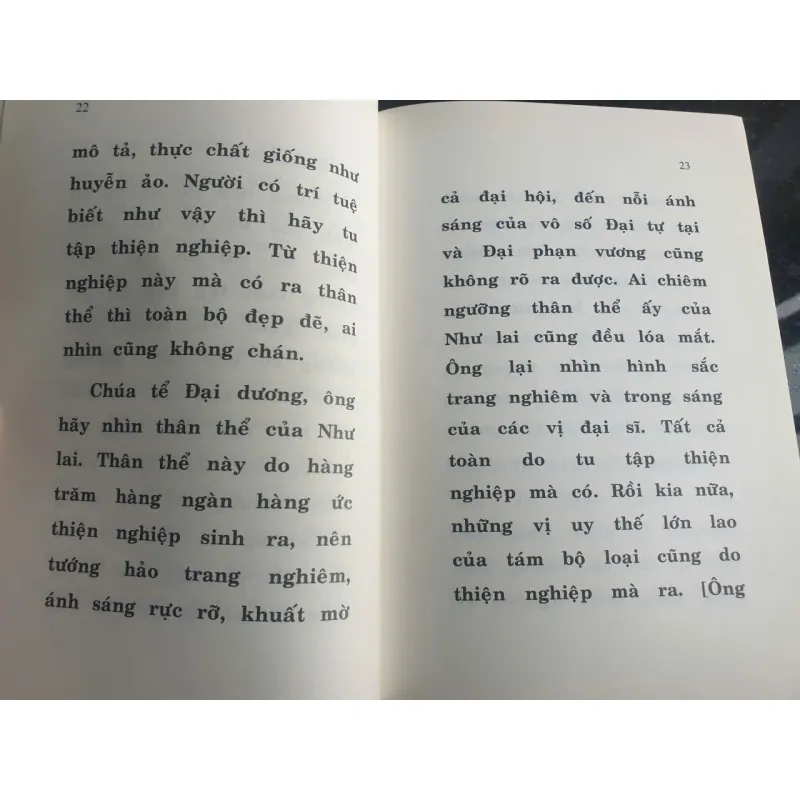 22
mô tả, thực chất giống như
huyễn ảo. Người có trí tuệ
biết như vậy thì hãy tu
tập thiện nghiệp. Từ thiện
nghiệp này mà có ra thân
thể thì toàn bộ đẹp đẽ, ai
nhìn cũng không chán.
Chúa tể Đại dương, ông
hãy nhìn thân thể của Như
lai. Thân thể này do hàng
trăm hàng ngàn hàng ức
thiện nghiệp sinh ra, nên
tướng hảo trang nghiêm,
ánh sáng rực rỡ, khuất mờ
23
cả đại hội, đến nỗi ánh
sáng của vô số Đại tự tại
và Đại phạn vương cũng
không rõ ra được. Ai chiêm
ngưỡng thân thể ấy của
Như lai cũng đều lóa mắt.
Ông lại nhìn hình sắc
trang nghiêm và trong sáng
của các vị đại sĩ. Tất cả
toàn do tu tập thiện
nghiệp mà có. Rồi kia nữa,
những vị uy thế lớn lao
của tám bộ loại cũng do
thiện nghiệp mà ra. [Ông